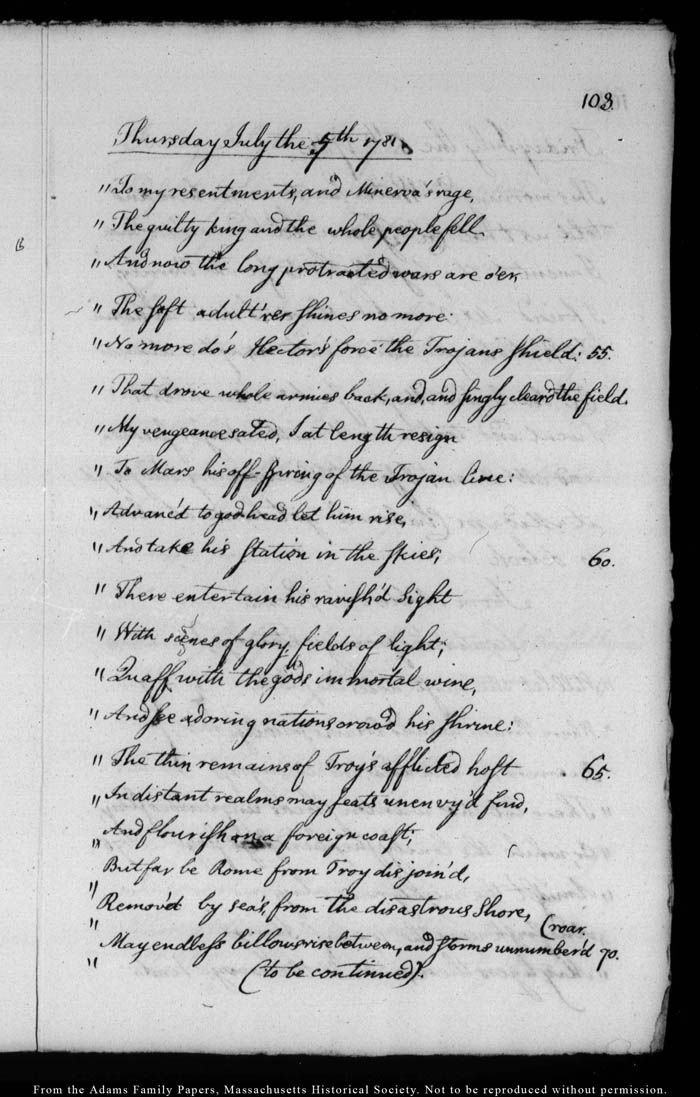 103.
Thursday July the 5th 1781.
" To my resentments, and Minerva's rage,
" The guilty king and the whole people fell.
" And now the long protracted wars are o'er,
" The soft adult'rer shines no more.
" No more do's Hector's force the Trojans shield: 55.
" That drove whole armies back, and, and singly clear'd the field.
" My vengeance sated, I at length resign
" To Mars his off-spring of the Trojan line:
" Advanc'd to godhead let him rise,
" And take his station in the skies; 60.
" There entertain his ravish'd sight
" With scenes of glory, fields of light;
" Quaff with the gods immortal wine,
" And see adoring nations crowd his shrine:
" The thin remains of Troy's afflicted host 65.
" In distant realms may seats unenvy'd find,
" And flourish on a foreign coast;
" But far be Rome from Troy disjoin'd,
" Remov'd by seas, from the disastrous shore,
" May endless billows rise between, and storms unnumber'd (roar. 70.
(to be continued).
From the Adams Family Papers, Massachusetts Historical Society. Not to be reproduced without permission.